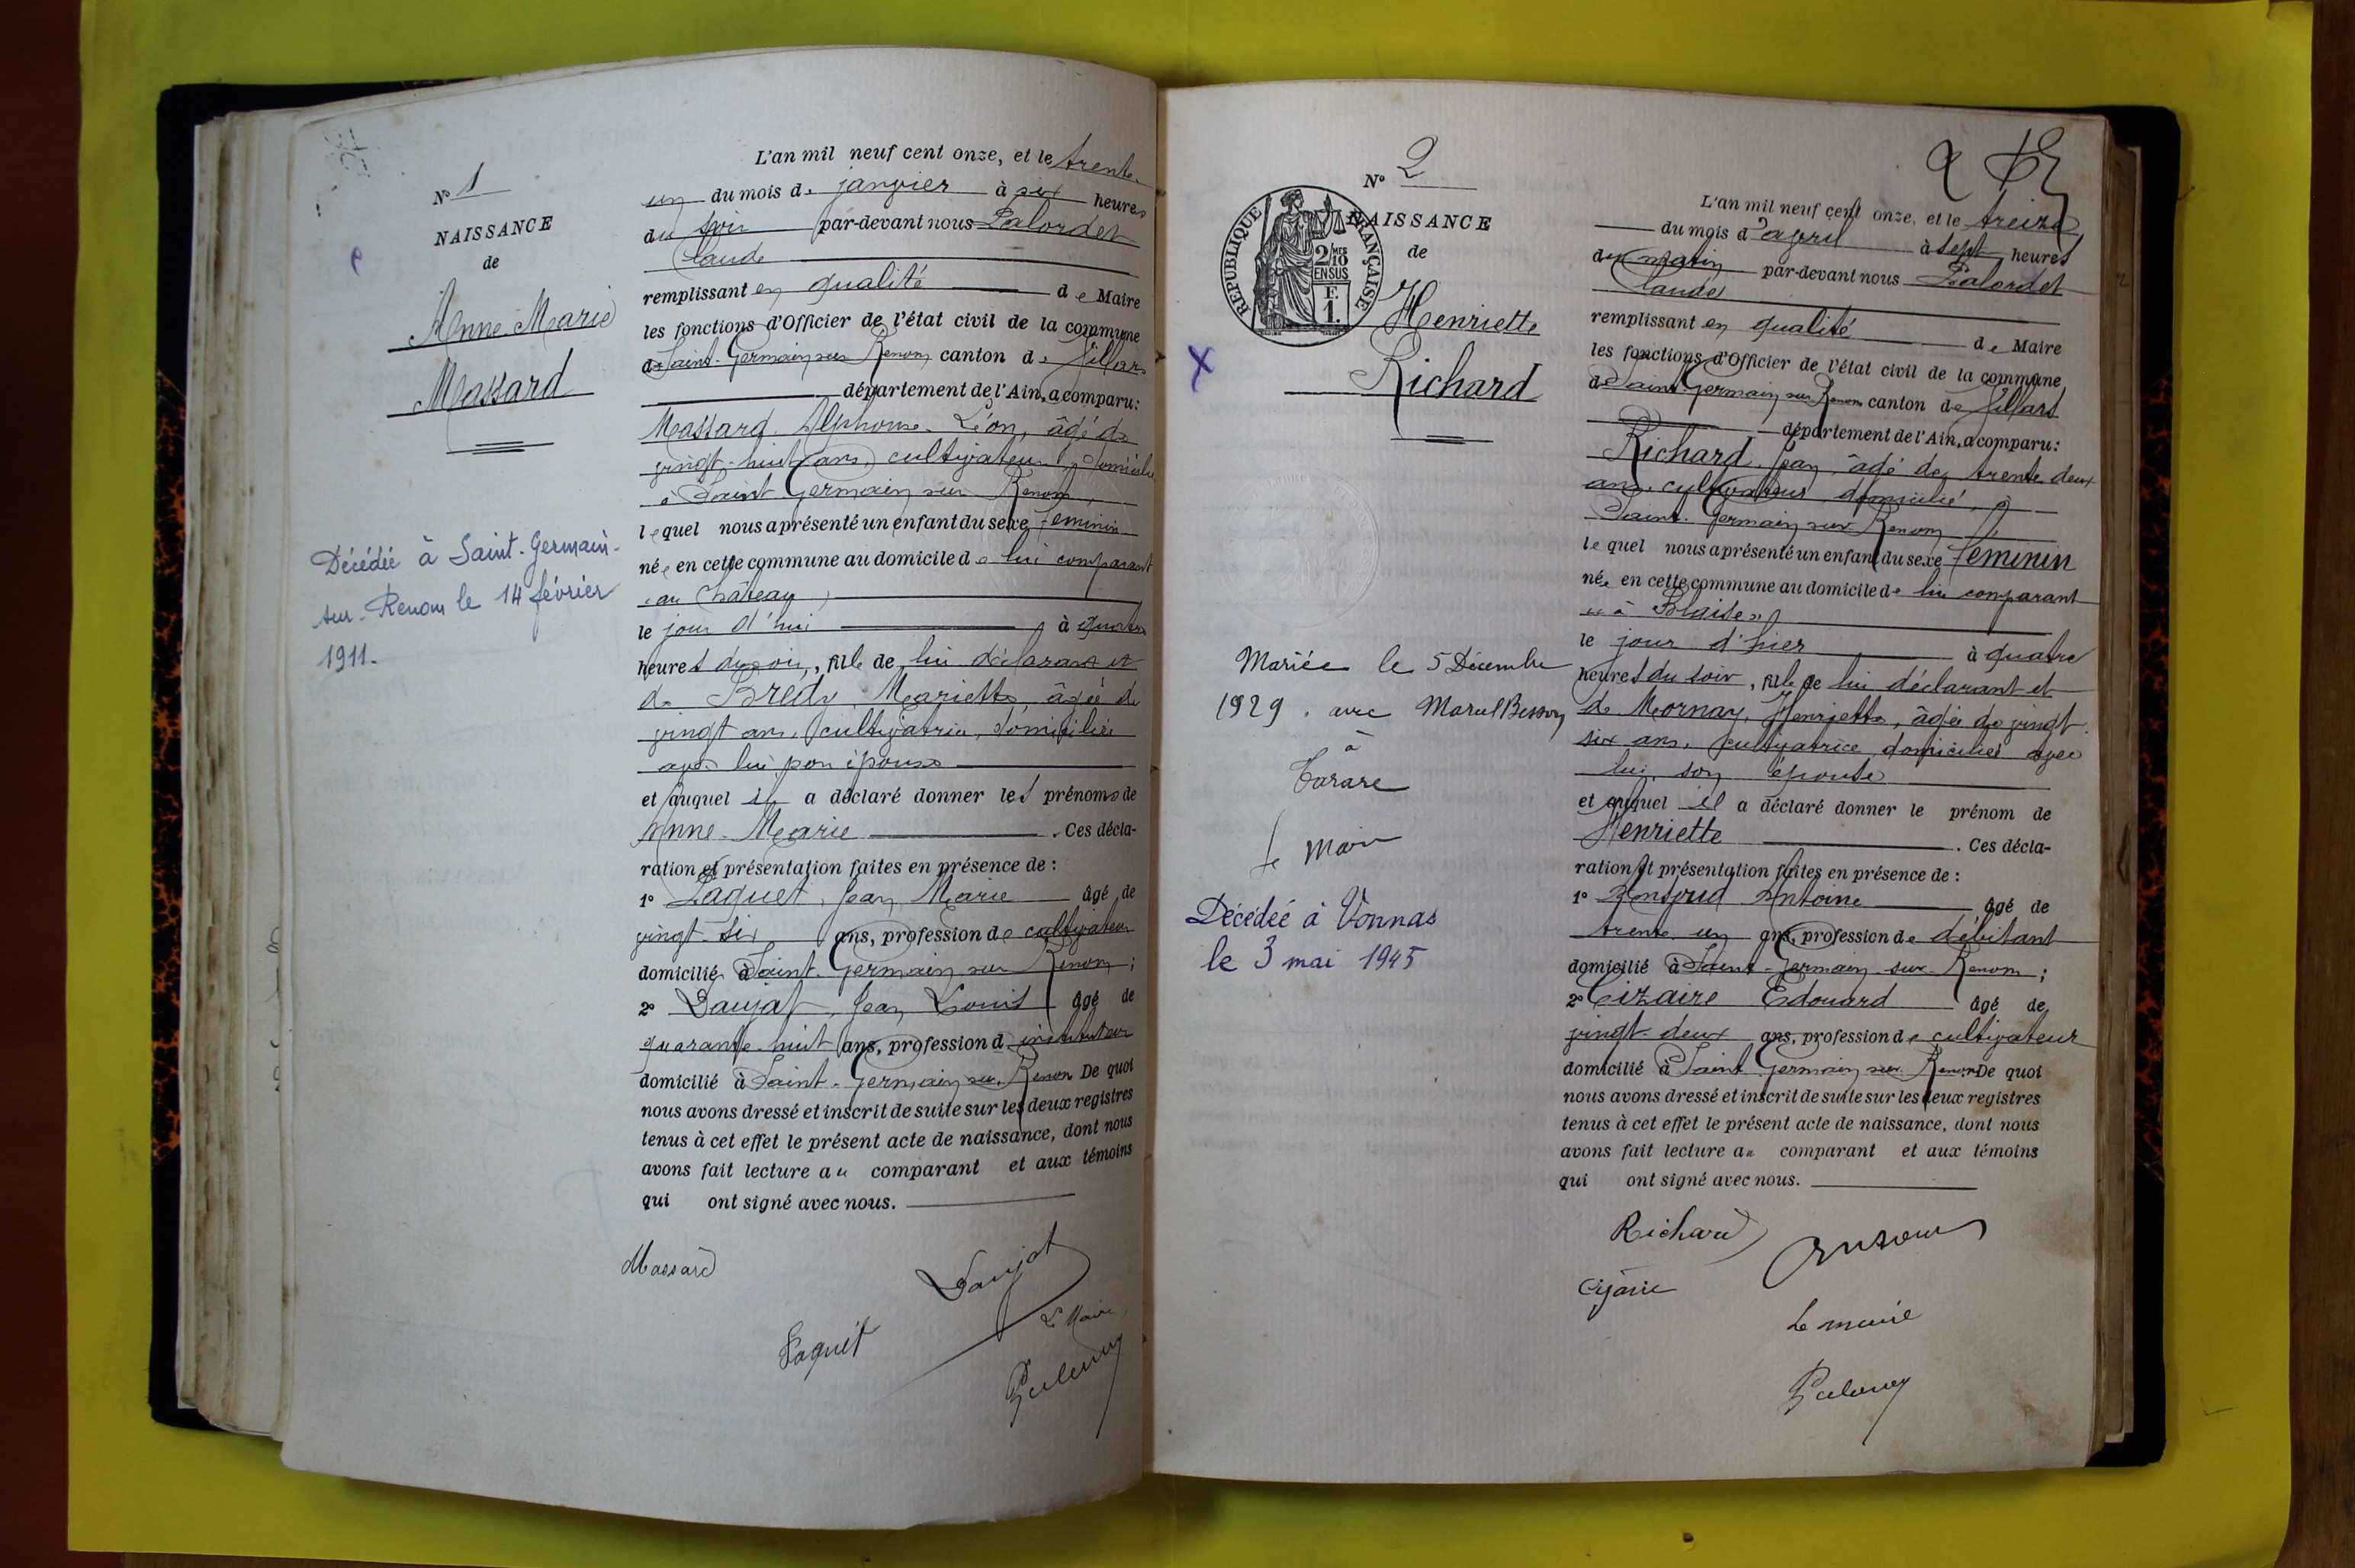 N° 1
NAISSANCE
de
Anne Marie
Massard
Décédée à Saint-Germain-
sur-Renom le 14 février
1911.
L'an mil neuf cent onze, et le trente
un du mois de janvier à six heures
du soir par-devant nous Palordet
Claude
remplissant en qualité de Maire
les fonctions d'Officier de l'état civil de la commune
de Saint-Germain sur Renom canton de Villars
département de l'Ain, a comparu:
Massard Alphonse Léon, âgé de
vingt-huit ans, cultivateur domicilié
à Saint Germain sur Renom,
lequel nous a présenté un enfant du sexe féminin
née en cette commune au domicile de lui comparant
au Château,
le jour d'hui à quatre
heures du soir, fille de lui déclarant et
de Bredy Mariette, âgée de
vingt ans, cultivatrice, domiciliée
avec lui, son épouse
et auquel il a déclaré donner les prénoms de
Anne-Marie. Ces décla-
ration et présentation faites en présence de:
1° Paquet, Jean Marie âgé de
vingt-six ans, profession de cultivateur
domicilié à Saint-Germain sur Renom;
2° Daujat, Jean Louis âgé de
quarante-huit ans, profession d instituteur
domicilié à Saint-Germain sur Renom De quoi
nous avons dressé et inscrit de suite sur les deux registres
tenus à cet effet le présent acte de naissance, dont nous
avons fait lecture au comparant et aux témoins
qui ont signé avec nous.
Massard
Daujat
Paquet
Le Maire,
N° 2
RÉPUBLIQUE FRANÇAISE
2/10
MES
EN SUS
F.
1.
NAISSANCE
de
Henriette
Richard
Mariée le 5 Décembre
1929. avec Marcel Besson
à
Tarare
Le Maire
Décédée à Vonnas
le 3 mai 1945
2
L'an mil neuf cent onze, et le treize
du mois d'avril à sept heures
du matin par-devant nous Palordet
Claude
remplissant en qualité de Maire
les fonctions d'Officier de l'état civil de la commune
de Saint-Germain sur Renom canton de Villars
département de l'Ain, a comparu:
Richard, Jean, âgé de trente deux
ans, cultivateur domicilié à
Saint-Germain sur Renom
lequel nous a présenté un enfant du sexe féminin
née en cette commune au domicile de lui comparant
"à Blaise"
le jour d'hier à quatre
heures du soir, fille de lui déclarant et
de Mornay, Henriette, âgée de vingt
six ans, cultivatrice, domiciliée avec
lui, son épouse
et auquel il a déclaré donner le prénom de
Henriette. Ces décla-
ration et présentation faites en présence de:
1° Ansoud Antoine âgé de
trente un ans, profession de débitant
domicilié à Saint-Germain-sur-Renom;
2° Cizaire Edouard âgé de
vingt-deux ans, profession de cultivateur
domicilié à Saint Germain sur Renom De quoi
nous avons dressé et inscrit de suite sur les deux registres
tenus à cet effet le présent acte de naissance, dont nous
avons fait lecture au comparant et aux témoins
qui ont signé avec nous.
Richard
Le maire